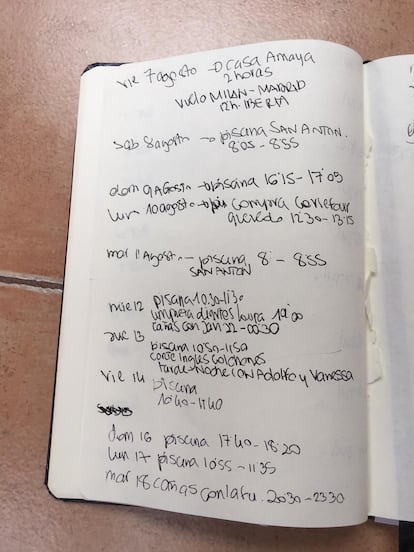 vie 7 agosto → casa Amaya
2 horas
vuelo MILAN - MADRID
12h. IBERIA
sab 8 agosto → piscina SAN ANTON.
8'05 - 8'55
dom 9 Agosto → piscina 16'15 - 17'05
lun 10 agosto → compra Carrefour
quevedo 12'30 - 13'15
mar 11 Agosto - piscina 8' - 8'55
SAN ANTON
mie 12 piscina 10'30 - 11'30
limpieza dientes Loura 19'00
cañas con Jan 22 - 00'30
jue 13 piscina 10'50 - 11'50
corte ingles colchones
tarde - Noche CON Adolfo y Vanessa
vie 14 piscina
10'40 - 11'40
dom 16 piscina 17'40 - 18'20
lun 17 piscina 10'55 - 11'35
mar 18 cañas con Lafu. 20'30 - 23'30